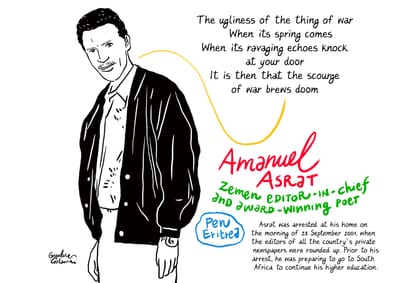 The ugliness of the thing of war
When its spring comes
When its ravaging echoes knock
at your door
It is then that the scourge
of war brews doom
Amanuel
Asrat
Zemen EDITOR-IN-chief
and award-winning poet
Pen
Eritrea
Asrat was arrested at his home on
the morning of 23 September 2001, when
the editors of all the country's private
newspapers were rounded up. Prior to his
arrest, he was preparing to go to South
Africa to continue his higher education.